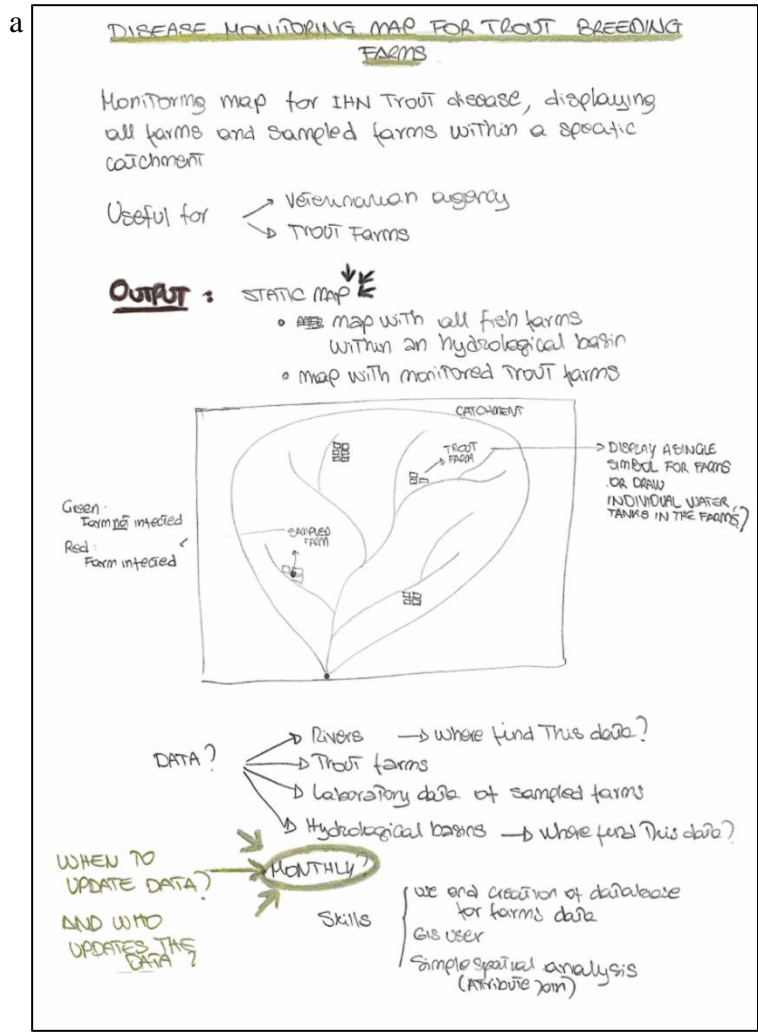 a
DISEASE MONITORING MAP FOR TROUT BREEDING
FARMS
Monitoring map for IHN Trout disease, displaying
all farms and sampled farms within a specific
catchment
Useful for
Veterinarian agency
Trout Farms
OUTPUT :
STATIC MAP
• map with all fish farms
within an hydrological basin
• map with monitored Trout farms
CATCHMENT
TROUT
FARM
DISPLAY A SINGLE
SIMBOL FOR FARMS
OR DRAW
INDIVIDUAL WATER
TANKS IN THE FARMS?
Green:
Farm not infected
Red:
Farm infected
SAMPLED
FARM
DATA?
Rivers → where find This data?
Trout farms
Laboratory data of sampled farms
Hydrological basins → where find This data?
WHEN TO
UPDATE DATA?
MONTHLY?
AND WHO
UPDATES THE
DATA?
Skills
use and creation of database
for farms data
GIS user
Simple spatial analysis
(Attribute join)